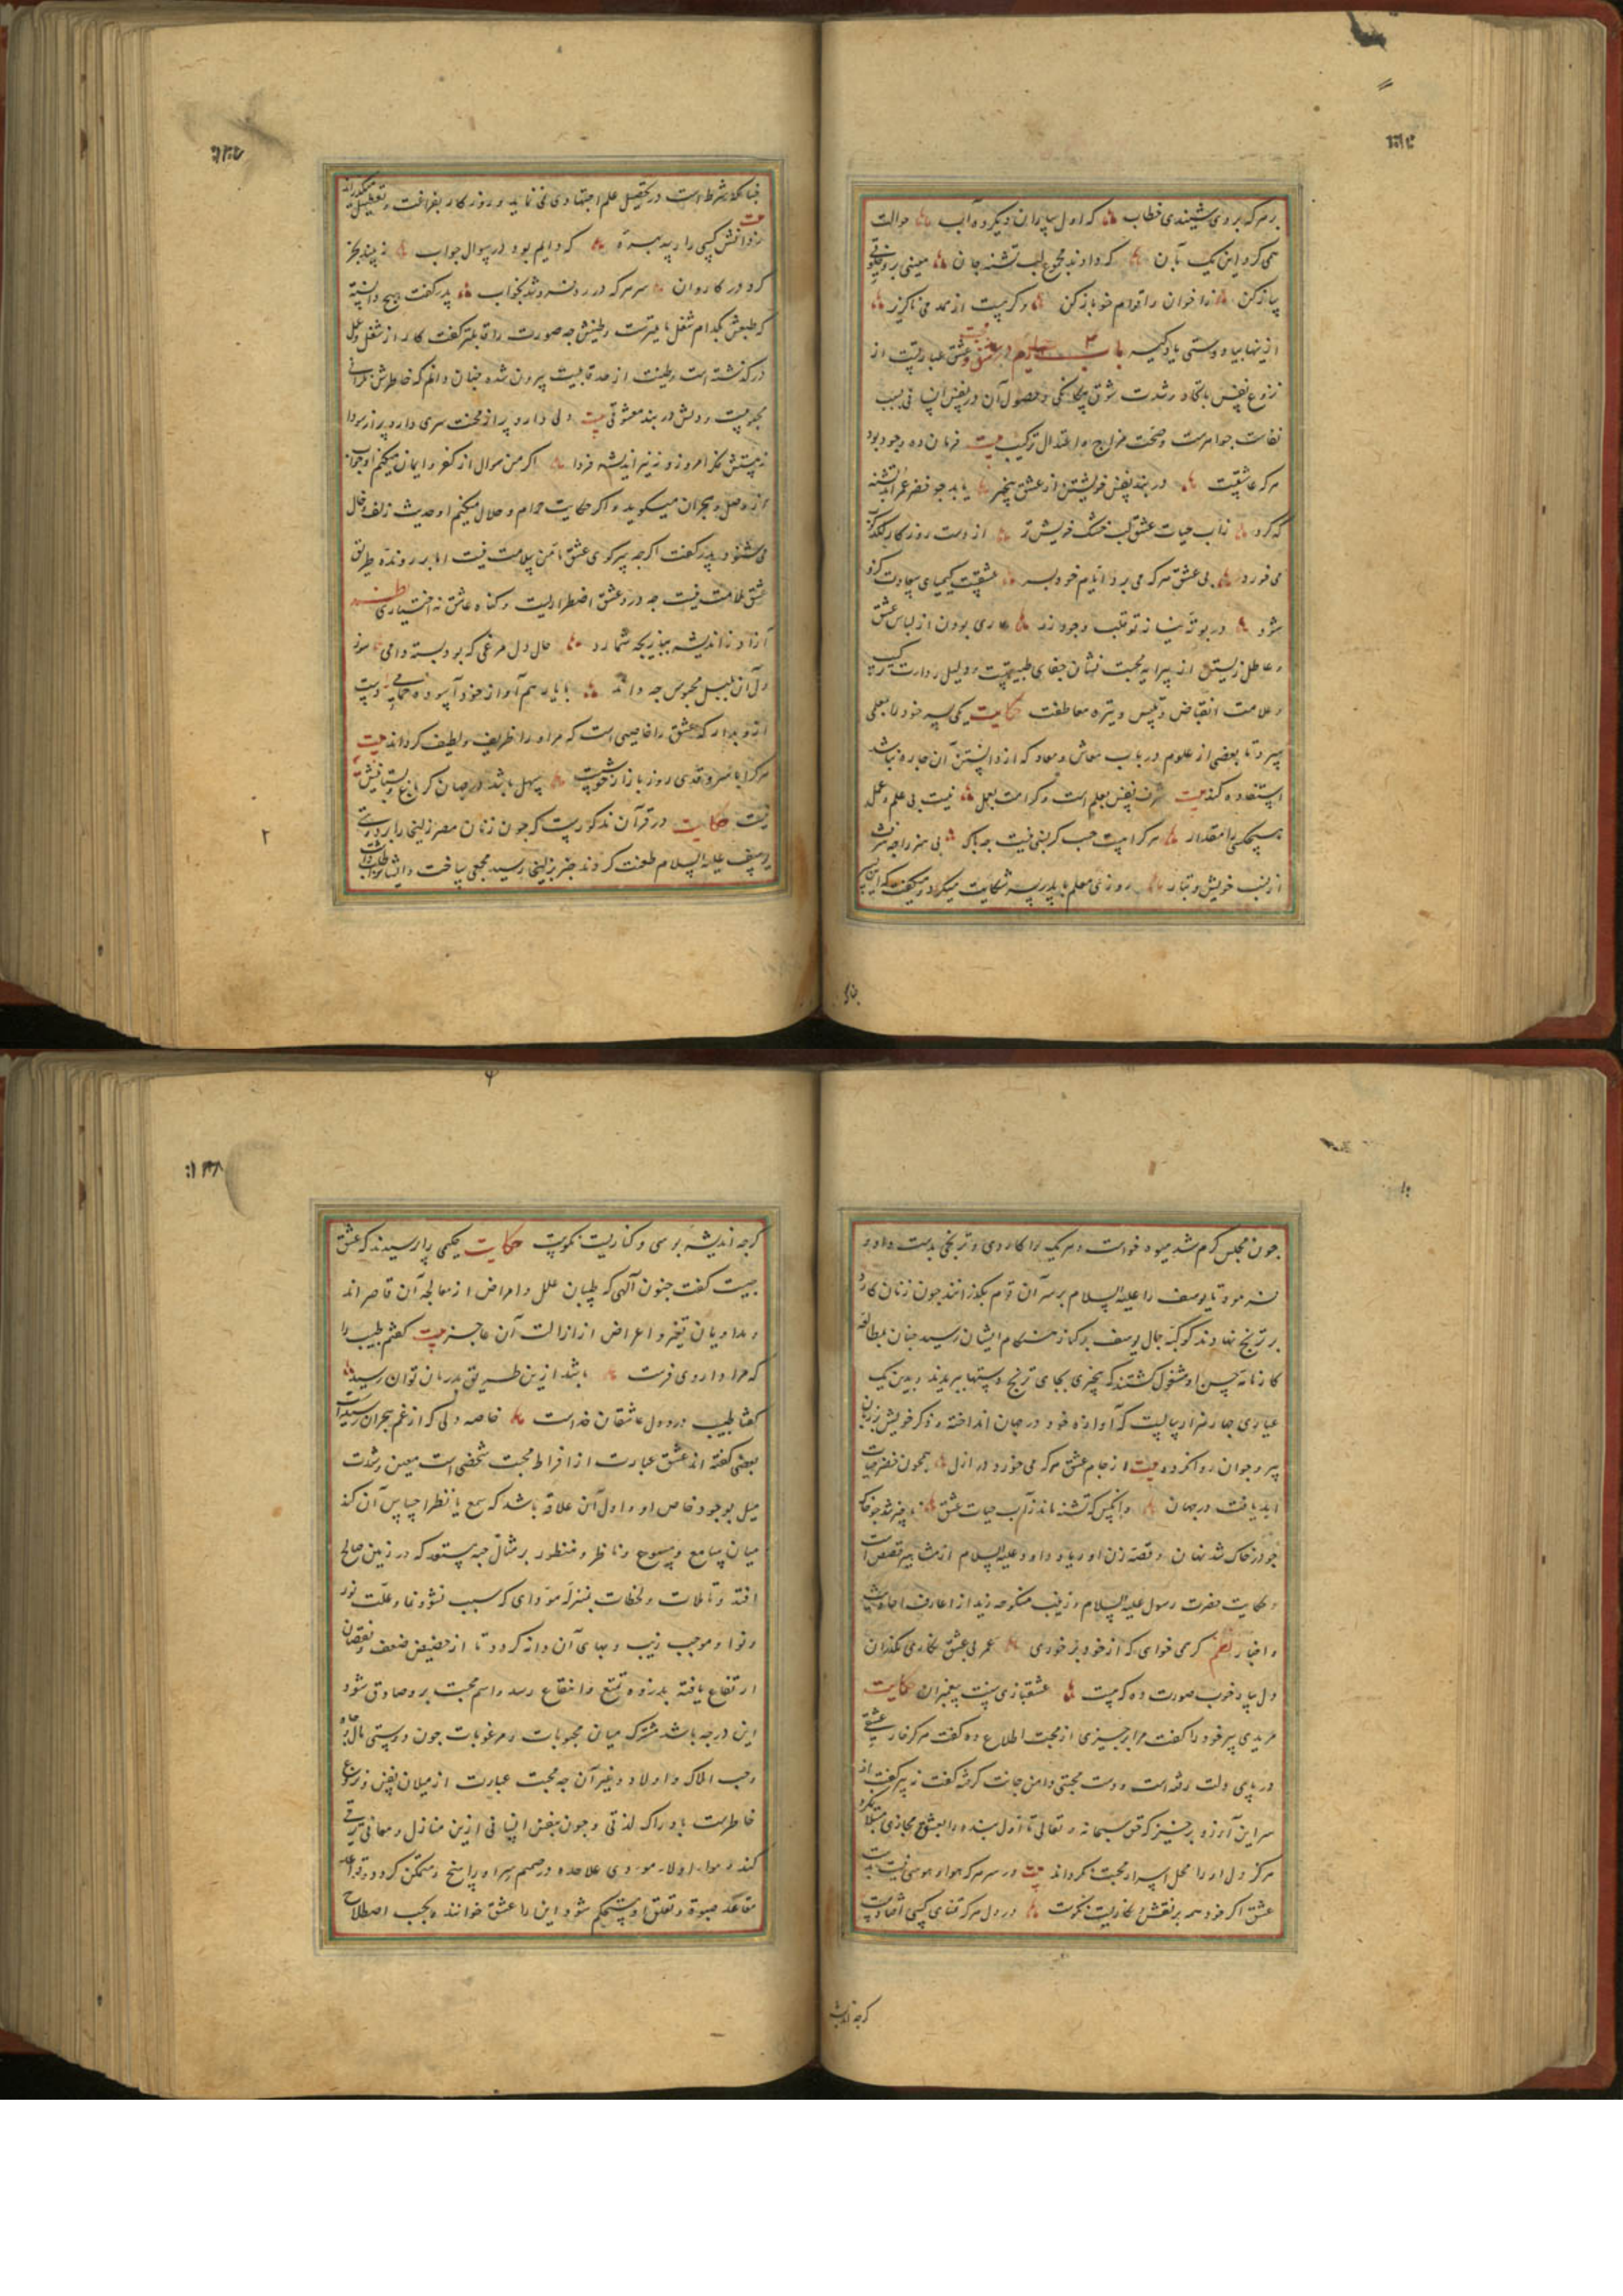 بر هر که بروی شیندی خطاب که اول بیاران دیگر ده آب حوالت
همی کرد این یک بآن که دادند مجموع لب تشنه جان معینی برو
پیاز کن را خوان را قوام خود باز کن وگر نیست از صد می ناگزیر
ازینها بیا دوستی یاد گیر باب در عشق و عشق عبارتیست از
نزوع نفس باتحاد و شدت شوق بیگانگی و حصول آن در نفس انسانی بسبب
نفاست جوهرست و صحت مزاج و اعتدال ترکیب بیت فرمان ده وجود بود
هر که عاشقیست در بند نفس خویشتن از عشق بیخبر یابد چو خضر عمر ابد تشنه
که کرد زآب حیات عشق لب خشک خویش تر از دست روزگار
می خورد بی عشق هر که می برد ایام خود بسر عشقست کیمیای سعادت کزو
شود در بوته نیاز تو قلب وجود زر عاری بودن از لباس عشق
و عاطل زیستن از پیرایه محبت نشان جفای طبیعتست و دلیل ردائت
و علامت انقباض و تیره معاطفت حکایت یکی پسر خود را بمعلمی
سپرد تا بعضی از علوم در باب معاش و معاد که از دانستن آن چاره نباشد
استفاده کند بیت شرف نفس بعلم است و کرامت بعمل نیست بی علم و عمل
هیچکسی را مقدار هر کرا هست حسب گر نسبی نیست چه باک بی هنر را چه شرف
از نسب خویش و تبار روزی معلم با پدر پسر شکایت میکرد و میگفت که این پسر
چنانکه شرط است در تحصیل علم اجتهادی نمی نماید و روزگار بفراغت و تعطیل میگذراند
ز دانش کسی را رسد بهره که دایم بود در سوال جواب نه بیند بجز
گرد در کاروان سر هر که در ره فرو شد بخواب پدر گفت هیچ دانسته
که طبعش بکدام شغل مایلترست و طینتش چه صورت را قابلتر گفت کار از شغل و عمل
درگذشته است و طینت از حد قابلیت بیرون شده چنان دانم که خاطرش نگران
محبوبیست و دلش در بند معشوقی بیت دلی دارد پر از محنت سری دارد پر از سودا
نه هستش فکر امروز و نه نیز اندیشه فردا اگر من سوال از کفر و ایمان میکنم او جواب
از وصل و هجران میگوید و اگر حکایت حرام و حلال میکنم او حدیث زلف و خال
می شنود پدر گفت اگر چه پیر کوی عشق مأمن سلامت نیست اما بر رونده طریق
عشق ملامت نیست چه درد عشق اضطراریست و گناه عاشق نه اختیاری نظم
آزاد ز اندیشه بیازیچه شمارد حال دل مرغی که بود بسته دامی سوز
دل آن بلبل محبوس چه داند با یار هم آواز خود آسوده حمامی دست
ازو بدار که عشق را خاصیتی است که مرد را ظریف و لطیف گرداند بیت
هر کرا با سرو قدی روز بازار خوشست سهل باشد در جهان گر باغ و بستانیش
نیست حکایت در قرآن مذکورست که چون زنان مصر زلیخا را بر دوستی
یوسف علیه السلام طعنت کردند خبر بزلیخا رسید مجمعی ساخت و ایشانرا طلب داشت
چون مجلس گرم شد میوه خواست و هر یک را کاردی و ترنجی بدست داد و
فرمود تا یوسف را علیه السلام بر سر آن قوم بگذرانند چون زنان کارد
بر ترنج نهادند کوکبه جمال یوسف برکنار هنگام ایشان رسید چنان بمطالعه
کارنامه حسن او مشغول گشتند که بیخبری بجای ترنج دستها ببریدند و بدین یک
عیاری چار هزار سالیست که آوازه خود در جهان انداخته و ذکر خویش بر زبان
پیر و جوان روانکرده بیت از جام عشق هر که می خورد در ازل همچون خضر حیات
ابد یافت در جهان وانکس که تشنه ماند ز آب حیات عشق ناچیز شد چو خاک
چو در خاک شد نهان و قصه زن اوریا و داود علیه السلام از مشاهیر قصص است
و حکایت حضرت رسول علیه السلام و زینب منکوحه زید از اعارف احادیث
و اخبار نظم گر می خواهی که از خود بر خوری عمر بی عشق نگاری مگذران
دل بیاد خوب صورت ده که هست عشقبازی سنت پیغمبران حکایت
مریدی پیر خود را گفت مرا بر چیزی از محبت اطلاع ده گفت هرگز خار عشقی
در پای دلت رفته است و دست محبتی دامن جانت گرفته گفت نه پیر گفت از
سر این آرزو برخیز که حق سبحانه و تعالی تا اول بنده را بعشق مجازی مبتلا نکرد
هرگز دل او را محل اسرار محبت نگرداند بیت در سر هر که هوا و هوسی نیست بدست
عشق اگر خود همه بر نقش نگاریست نکوست در دل هر که تمنای کسی افتادست
گرچه اندیشه
گرچه اندیشه بوسی و کناریست نکوست حکایت حکیمی را پرسیدند که عشق
چیست گفت جنون آلهی که طبیبان علل و امراض از معالجه آن قاصراند
و مداویان تغیر و اعراض از ازالت آن عاجز بیت گفتم طبیب را
که مرا داروی فرست باشد ازین طریق بدرمان توان رسید
گفتا طبیب درد دل عاشقان خداست خاصه دلی که از غم هجران رسیده است
بعضی گفته اند عشق عبارت از افراط محبت شخصی است معین و شدت
میل بوجود خاص او و اول آن علاقه باشد که سمع یا نظر احساس آن کند
میان سامع و مسموع و ناظر و منظور بر مثال حبه مستور که در زمین صالح
افتد و تأملات و لحظات بمنزله موادی که سبب نشو و نما و علت نور
و نوا و موجب زیب و بهای آن دانه گردد تا از حضیض ضعف و نقصان
ارتفاع یافته بذروه تمتع و انتفاع رسد و اسم محبت بر و صادق شود
این درجه باشد مشترک میان محبوبات و مرغوبات چون دوستی مال و جاه
و حب املاک و اولاد و غیر آن چه محبت عبارت از میلان نفس و نزوع
خاطرست بادراک لذتی و چون نفس انسانی ازین منازل و معانی ترقی
کند و موارد اولا موردی علاحده در صمیم سر او راسخ و متمکن گردد و قواعد
معاقد صبوة و تعلق او مستحکم شود این را عشق خوانند و بحسب اصطلاح